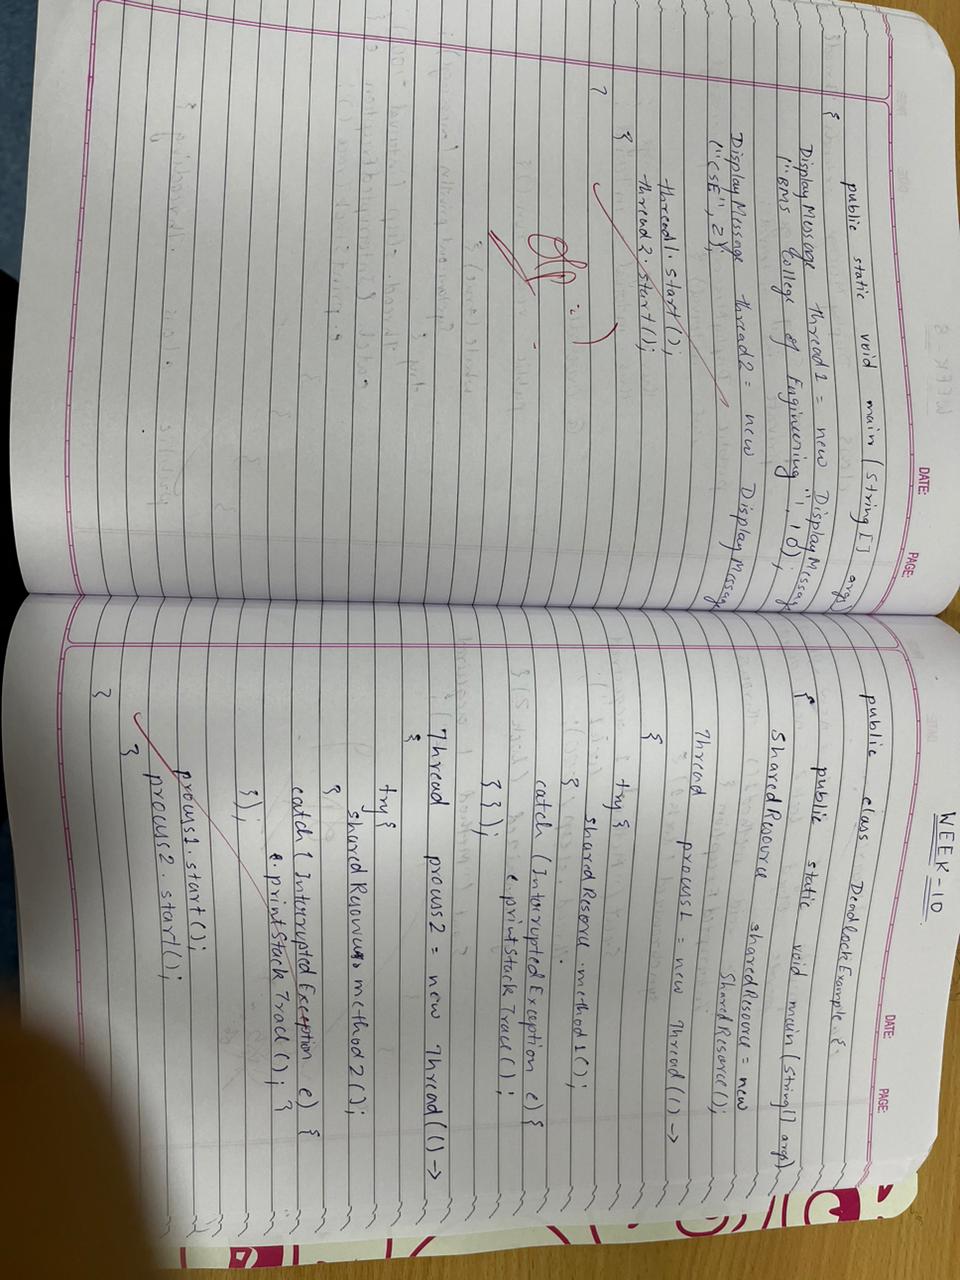 DATE: PAGE:
public static void main (String [] args)
{
DisplayMessage thread1 = new DisplayMessage
("BMS College of Engineering", 10);
DisplayMessage thread2 = new DisplayMessage
("CSE", 2);
thread1.start();
thread2.start();
}
}
WEEK-10
DATE: PAGE:
public class DeadlockExample {
public static void main (String[] args)
{
SharedResource sharedResource = new
SharedResource();
Thread process1 = new Thread(() ->
{
try{
sharedResource.method1();
}
catch (InterruptedException e){
e.printStackTrace();
} });
Thread process2 = new Thread(() ->
{
try{
sharedResource.method2();
}
catch (InterruptedException e) {
e.printStackTrace(); }
});
process1.start();
process2.start();
}
}